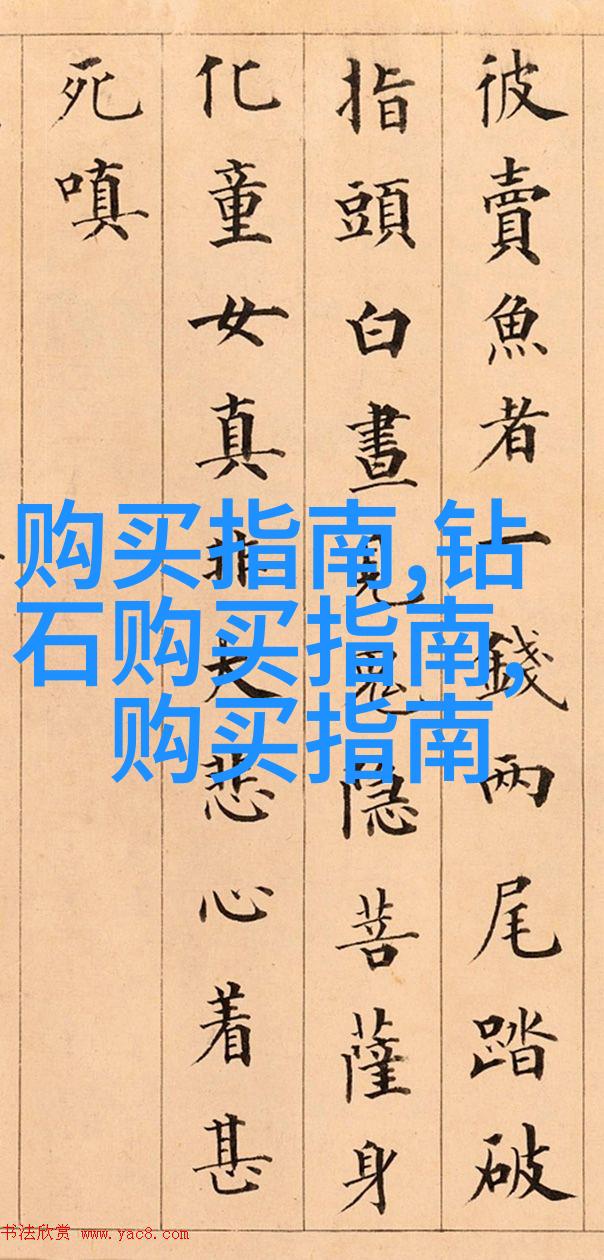 彼賣魚者一錢兩尾踏破
指頭白晝見鬼隐菩薩身
化童女真非大悲心着甚
死嗔
购买指南,钻
石购买指南,
购买指南
书法欣赏 www.yac8.com